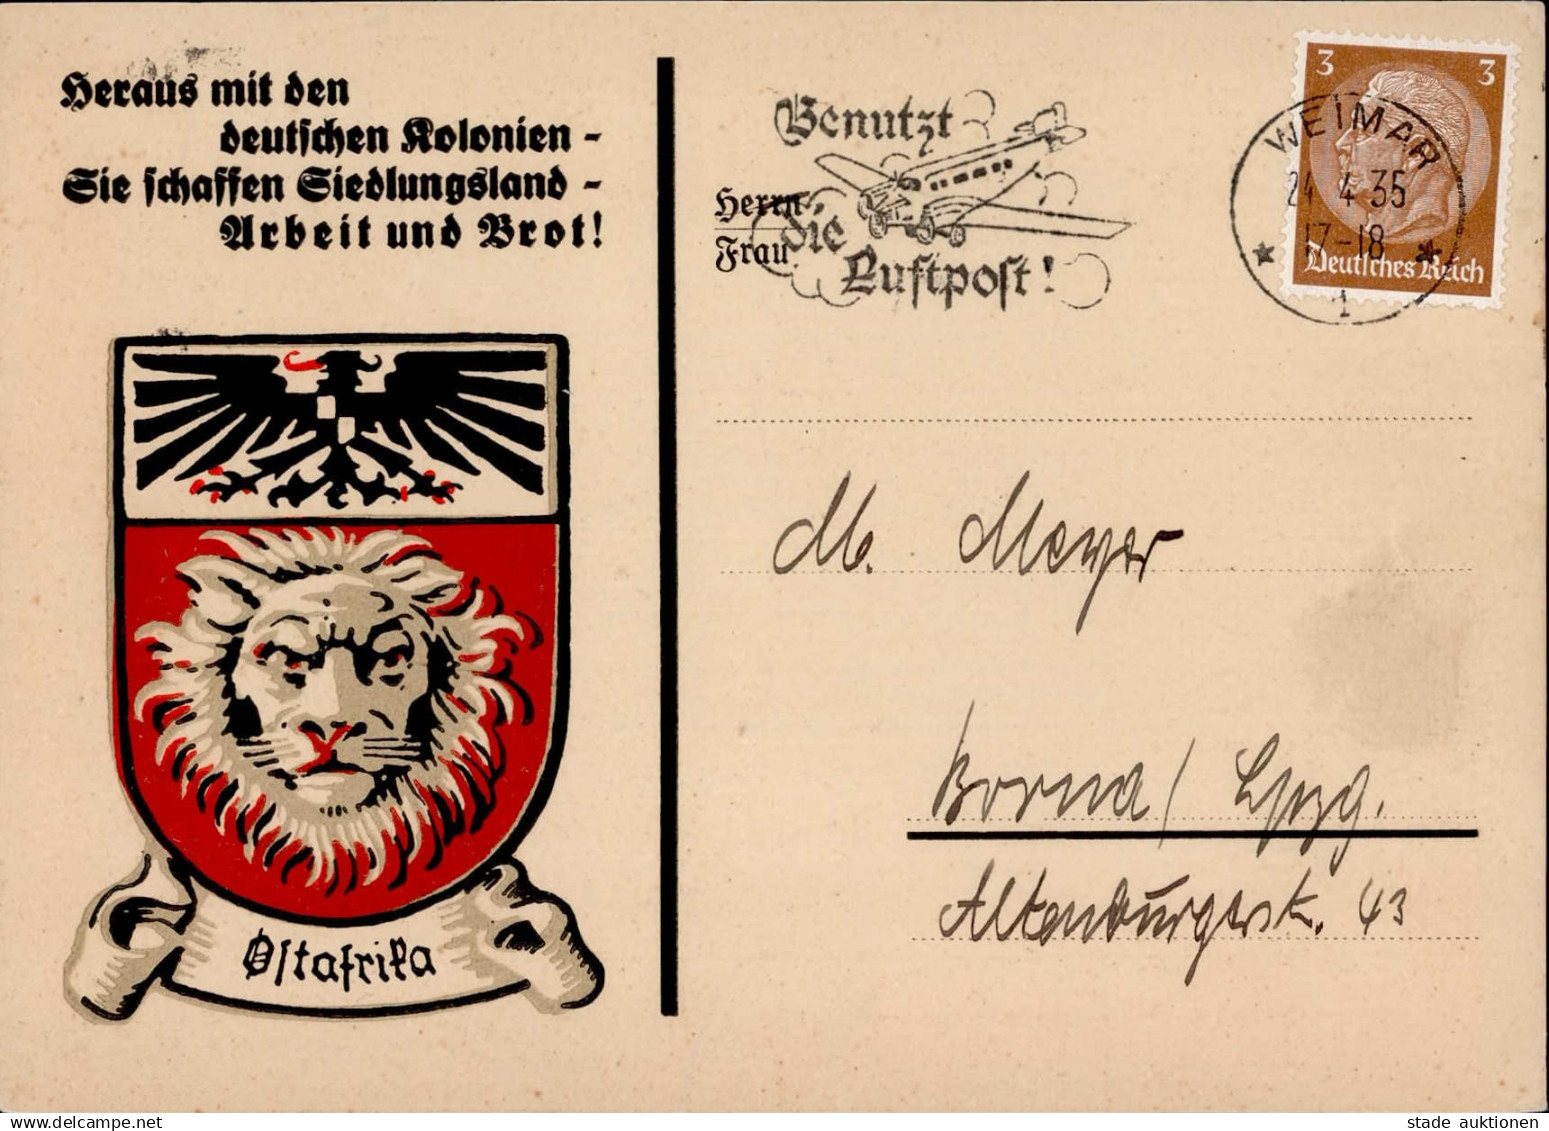 Heraus mit den
deutschen Kolonien -
Sie schaffen Siedlungsland -
Arbeit und Brot!
Ostafrika
Benutzt
die
Luftpost!
Herrn
Frau
WEIMAR
24 4 35
17-18
1
3 3
Deutsches Reich
M. Meyer
Borna / Lpzg.
Altenburgerstr. 43
stade auktionen